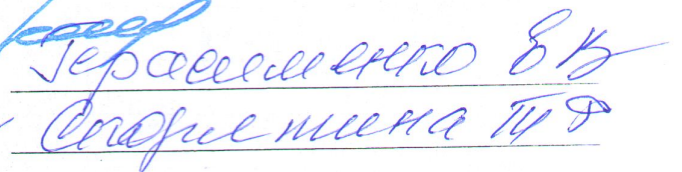 Герасименко Е В
Стадметина Т Ф